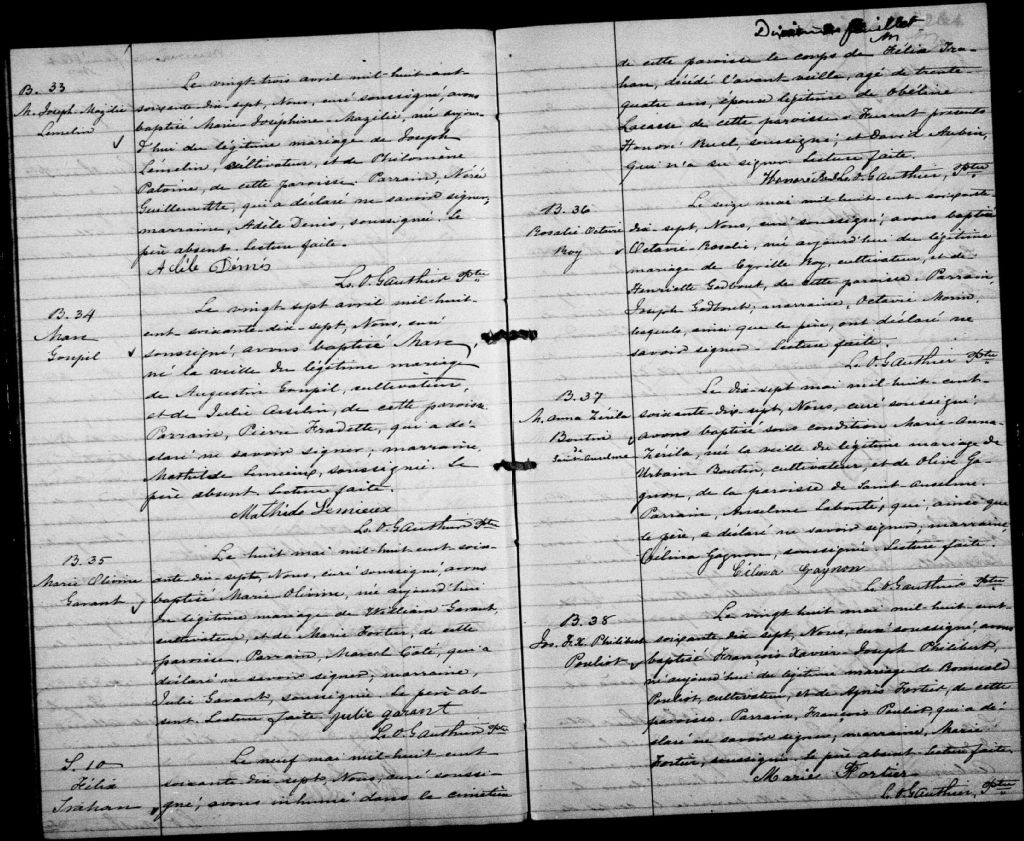 B. 33
M. Joseph. Mazilie
Lemelin
Le vingt trois avril mil-huit-cent-
soixante-dix-sept, Nous, curé soussigné, avons
baptisé Marie Joséphine-Mazilie, née aujour-
d'hui du légitime mariage de Joseph
Lemelin, cultivateur, et de Philomène
Patoine, de cette paroisse. Parrain, Nérée
Guillemette, qui a déclaré ne savoir signer,
marraine, Adèle Denis, soussignée. Le
père absent. Lecture faite.
Adèle Dénis
L. O. Gauthier Ptre
B. 34
Marc
Goupil
Le vingt sept avril mil-huit-
cent-soixante-dix-sept, Nous, curé
soussigné, avons baptisé Marc,
né la veille du légitime mariage
de Augustin Goupil, cultivateur,
et de Julie Asselin, de cette paroisse.
Parrain, Pierre Fradette, qui a dé-
claré ne savoir signer, marraine,
Mathilde Lemieux, soussignée. Le
père absent. Lecture faite.
Mathilde Lemieux
L. O. Gauthier Ptre
B. 35
Marie Olivine
Garant
Le huit mai mil-huit-cent-soix-
ante-dix-sept, Nous, curé soussigné, avons
baptisé Marie Olivine, née aujourd'hui
du légitime mariage de William Garant,
cultivateur, et de Marie Fortier, de cette
paroisse. Parrain, Marcel Coté, qui a
déclaré ne savoir signer, marraine,
Julie Garant, soussignée. Le père ab-
sent. Lecture faite. julie garant
L. O. Gauthier Ptre
S. 10
Félix
Trahan
Le neuf mai mil-huit-cent
soixante dix-sept, Nous, curé soussi-
gné, avons inhumé dans le cimetière
feuillet
de cette paroisse le corps de Félix Tra-
han, décédé l'avant veille, agé de trente
quatre ans, époux légitime de Obéline
Lacasse de cette paroisse. Furent présents
Honoré Buel, soussigné, et David Aubin,
qui n'a su signer. Lecture faite.
L. O. Gauthier, Ptre
B. 36
Rosalie Octavie
Roy
Le seize mai mil-huit-cent-soixante
dix-sept, Nous, curé soussigné, avons baptisé
Octavie-Rosalie, née aujourd'hui du légitime
mariage de Cyrille Roy, cultivateur, et de
Henriette Godbout, de cette paroisse. Parrain,
Joseph Godbout, marraine, Octavie Morin,
lesquels, ainsi que le père, ont déclaré ne
savoir signer. Lecture faite.
L. O. Gauthier Ptre
B. 37
M. Anna Zérila
Boutin
de Saint Anselme
Le dix-sept mai mil-huit-cent-
soixante-dix-sept, Nous, curé soussigné,
avons baptisé sous condition Marie-Anna-
Zérila, née la veille du légitime mariage de
Urbain Boutin, cultivateur, et de Olive Ga-
gnon, de la paroisse de Saint Anselme.
Parrain, Anselme Labonté, qui, ainsi que
le père, a déclaré ne savoir signer, marraine,
Célina Gagnon, soussignée. Lecture faite.
Célina Gagnon
L. O. Gauthier Ptre
B. 38
Jos. F. X. Philibert
Pouliot
Le vingt huit mai mil-huit-cent-
soixante dix sept, Nous, curé soussigné, avons
baptisé François Xavier-Joseph Philibert,
né aujourd'hui du légitime mariage de Romuald
Pouliot, cultivateur, et de Agnès Fortier, de cette
paroisse. Parrain, François Pouliot, qui a dé-
claré ne savoir signer, marraine, Marie
Fortier, soussignée. Le père absent. Lecture faite.
Marie Fortier
L. O. Gauthier, Ptre